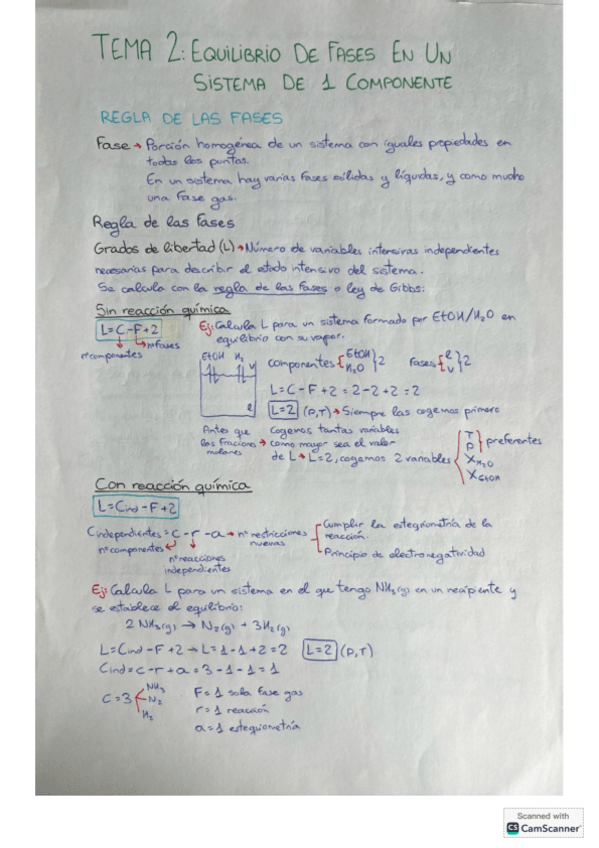 TEMA 2: EQUILIBRIO DE FASES EN UN
SISTEMA DE 1 COMPONENTE
REGLA DE LAS FASES
Fase → Porción homogénea de un sistema con iguales propiedades en
todos los puntos.
En un sistema hay varias fases sólidas y líquidas, y como mucho
una fase gas.
Regla de las Fases
Grados de libertad (L) → Número de variables intensivas independientes
necesarias para describir el estado intensivo del sistema.
Se calcula con la regla de las fases o ley de Gibbs:
Sin reacción química
L=C-F+2
nº componentes
nº fases
Ej: Calcula L para un sistema formado por EtOH/H₂O en
equilibrio con su vapor.
EtOH H₂
V
l
componentes { EtOH H₂O } 2 Fases { l v } 2
L = C - F + 2 = 2 - 2 + 2 = 2
L=2 (P,T) → Siempre las cogemos primero
Antes que
las fracciones
molares
→ Cogemos tantas variables
como mayor sea el valor
de L → L=2, cogemos 2 variables
T
P
} preferentes
X H₂O
X EtOH
Con reacción química
L=Cind-F+2
Cindependientes = c - r - a → nº restricciones
nuevas
nº componentes
nº reacciones
independientes
Cumplir la estequiometría de la
reacción.
Principio de electronegatividad
Ej: Calcula L para un sistema en el que tengo NH₃(g) en un recipiente y
se establece el equilibrio:
2 NH₃(g) → N₂(g) + 3H₂(g)
L=Cind-F+2 → L=1-1+2=2 L=2 (P,T)
Cind=c-r+a=3-1-1=1
C=3 NH₃ N₂ H₂
F=1 sola fase gas
r=1 reacción
a=1 estequiometría
Scanned with
CS CamScanner